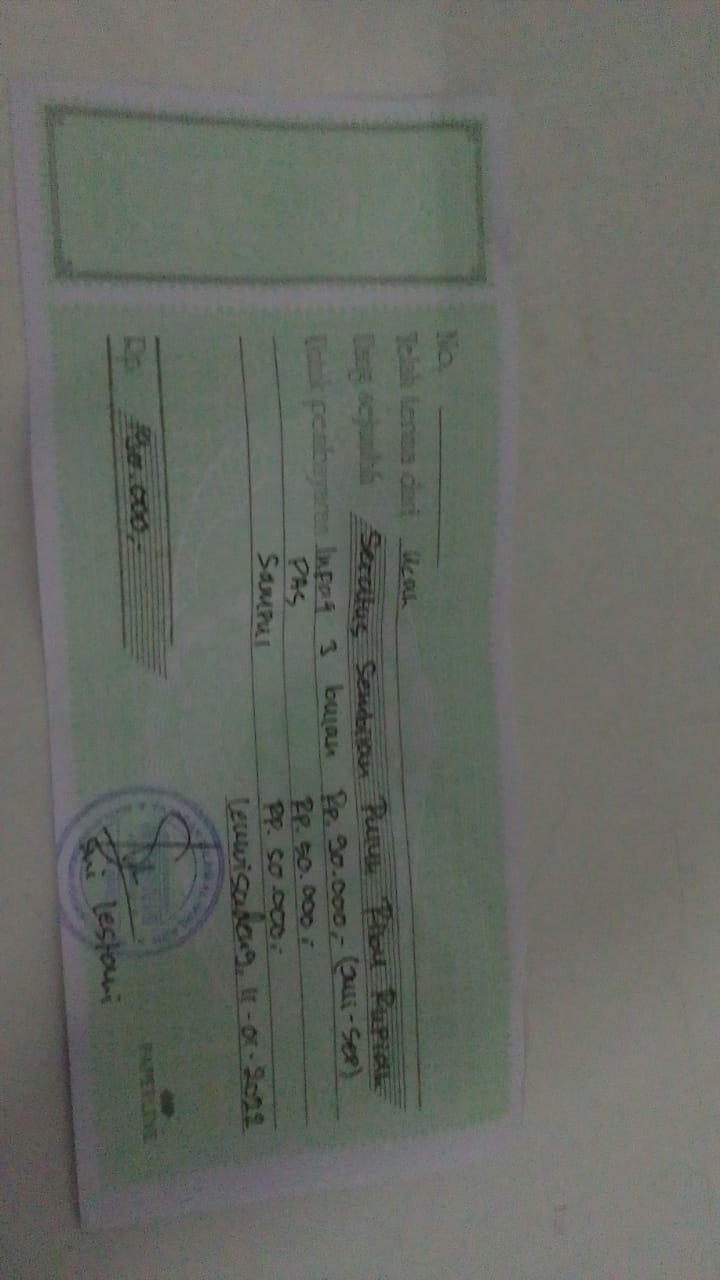 No.
Telah terima dari Ucau
Uang sejumlah Seratus Sembilan Puluh Ribu Rupiah
Untuk pembayaran Infaq 3 bulan Rp. 90.000,- (Juli - Sep)
PAS Rp. 50.000,-
Sampul Rp. 50.000,-
Leuwisadeng, 11 - 01 - 2022
Rp 190.000,-
Sri Lestari
PAPERLINE